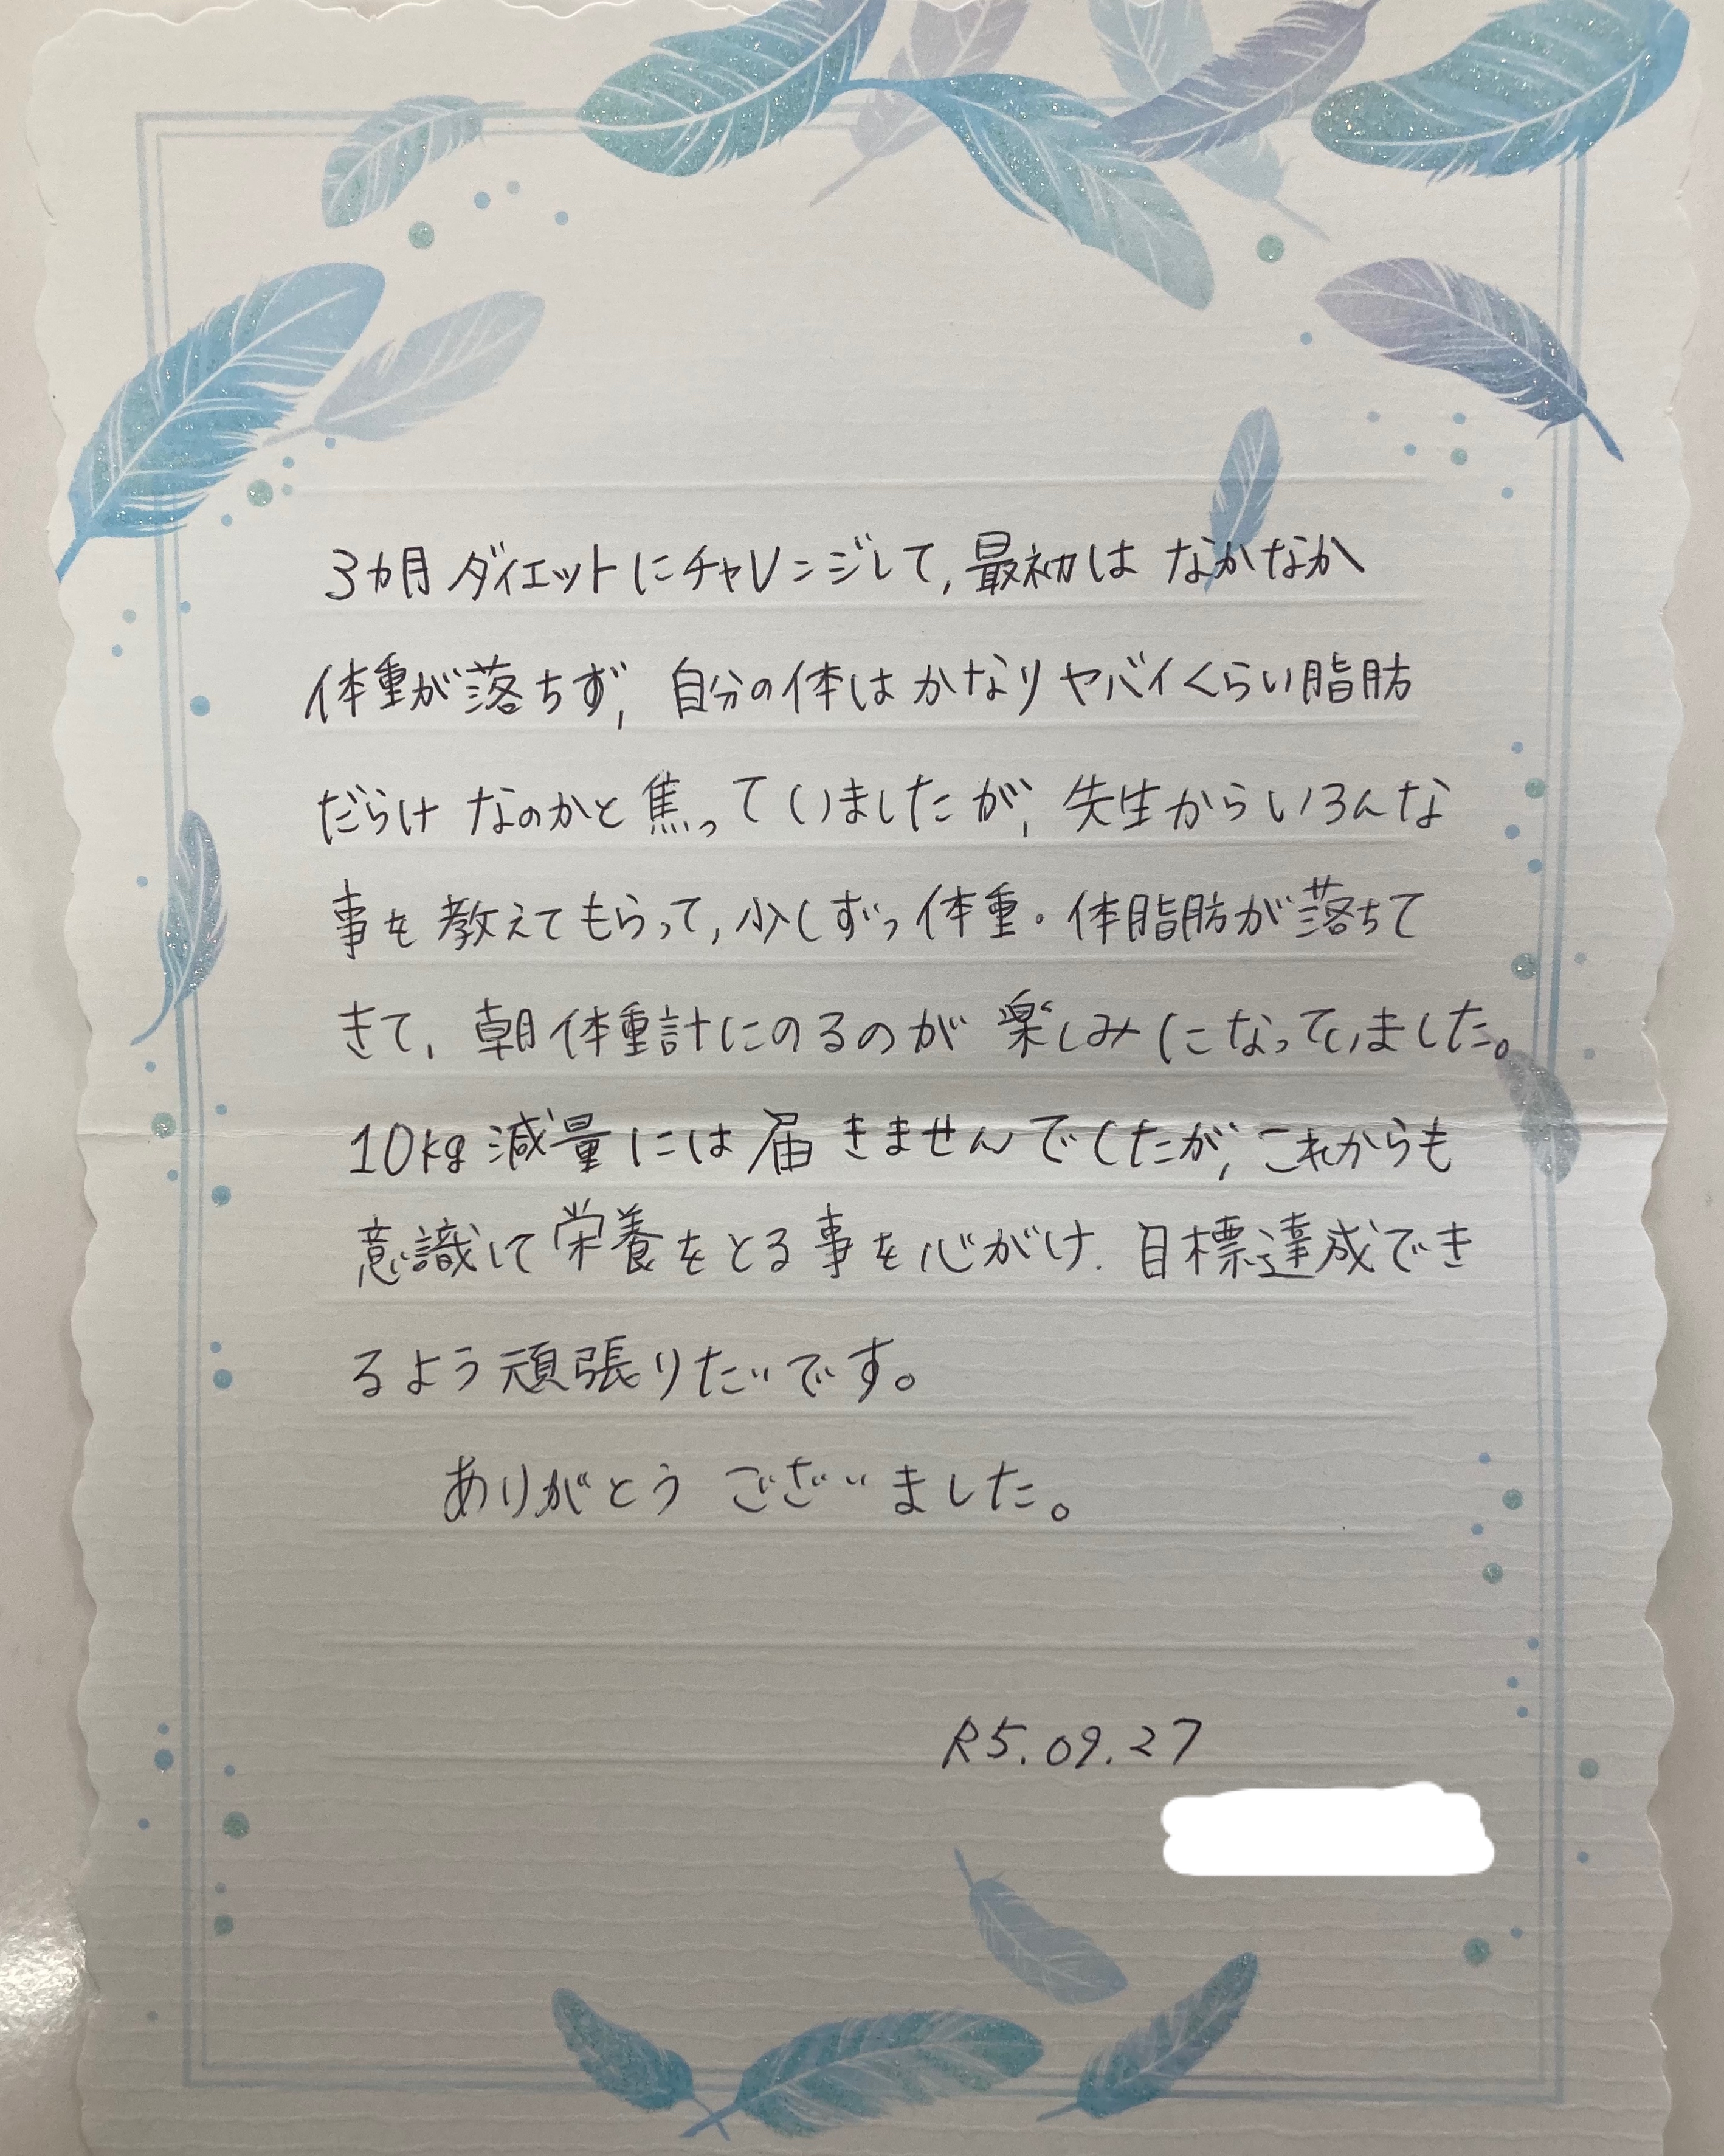 3カ月ダイエットにチャレンジして、最初は なかなか
体重が落ちず、自分の体はかなりヤバイくらい脂肪
だらけ なのかと焦っていましたが、先生からいろんな
事を教えてもらって、少しずつ体重・体脂肪が落ちて
きて、朝体重計にのるのが楽しみになっていました。
10kg減量には届きませんでしたが、これからも
意識して栄養をとる事を心がけ、目標達成でき
るよう頑張りたいです。
ありがとう ございました。
R5.09.27